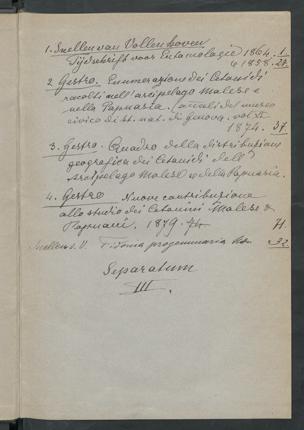 1. Snellen van Vollenhoven
Tijdschrift voor Entomologie 1864. 1.
" 1858. 27.
2. Gestro. Enumerazione dei Cetonidi
racolti nell' arcipelago Malese e
nella Papuasia. (Annali del museo
civico di st. nat. di Genova. vol VI
1874. 37.
3. Gestro. Quadro della distribuzione
geografica dei Cetonidi dell'
Arcipelago Malese e della Papuasia.
4. Gestro Nuove contribuzione
allo studio dei Cetonini Malesi &
Papuani. 1879. 71.
Snellen v. V. progemmaria 32
Separatum
III.